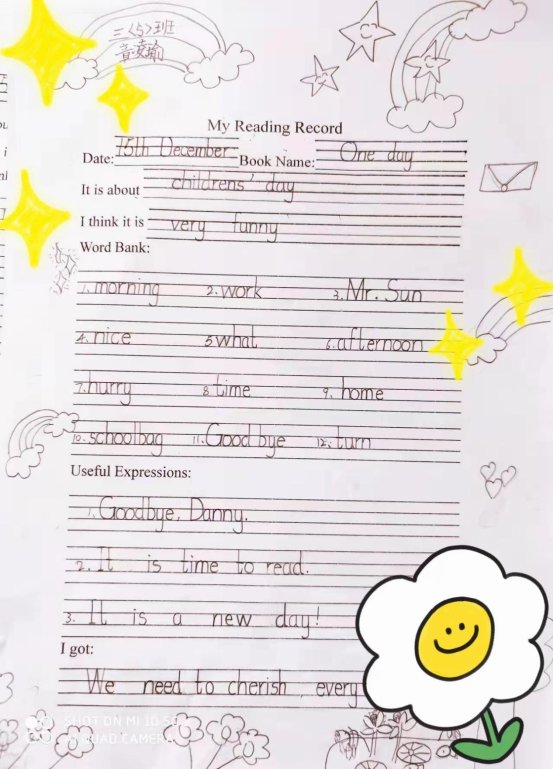 三〈5〉班
My Reading Record
Date: 15th December Book Name: One day
It is about childrens' day
I think it is very funny
Word Bank:
1. morning 2. work 3. Mr. Sun
4. nice 5 what 6. afternoon
7. hurry 8. time 9. home
10. schoolbag 11. Good bye 12. turn
Useful Expressions:
1. Goodbye, Danny.
2. It is time to read.
3. It is a new day!
I got:
We need to cherish every
SHOT ON MI 10 5G
QUAD CAMERA